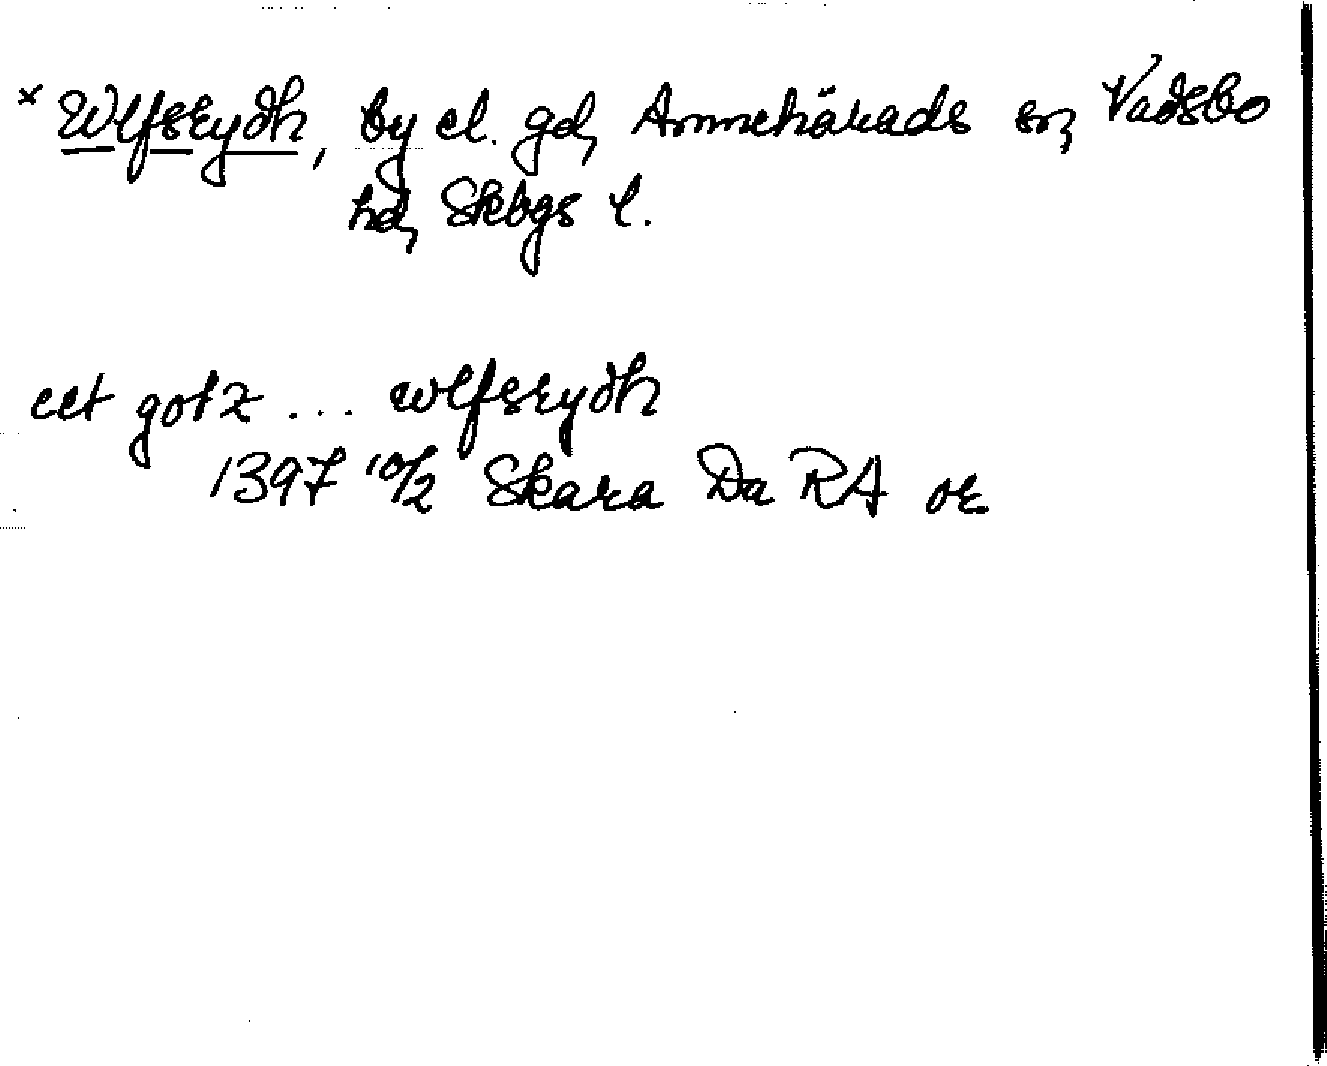 × Wlfsrydh, by el. gd, Amnehärads sn, Vadsbo
hd, Skbgs l.
eet gotz ... wlfsrydh
1397 10/2 Skara Da RA or.